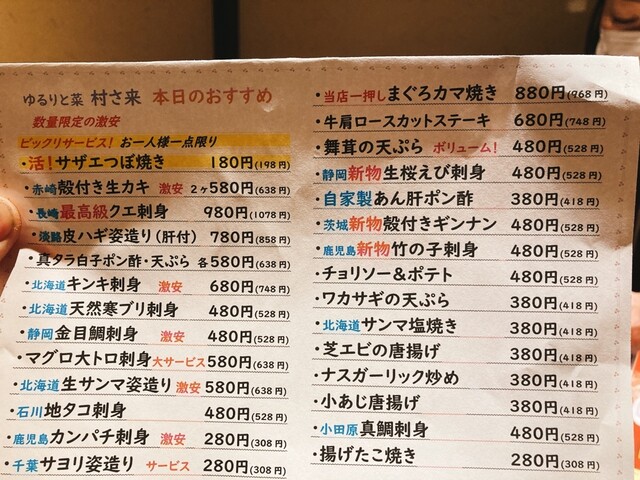 ゆるりと菜 村さ来 本日のおすすめ
数量限定の激安
ビックリサービス! お一人様一点限り
・活!サザエつぼ焼き 180円(198円)
・赤崎殻付き生カキ 激安 2ヶ580円(638円)
・長崎最高級クエ刺身 980円(1078円)
・淡路皮ハギ姿造り(肝付) 780円(858円)
・真タラ白子ポン酢・天ぷら 各580円(638円)
・北海道キンキ刺身 激安 680円(748円)
・北海道天然寒ブリ刺身 480円(528円)
・静岡金目鯛刺身 激安 480円(528円)
・マグロ大トロ刺身大サービス580円(638円)
・北海道生サンマ姿造り激安 580円(638円)
・石川地タコ刺身 480円(528円)
・鹿児島カンパチ刺身 激安 280円(308円)
・千葉サヨリ姿造り サービス 280円(308円)
・当店一押しまぐろカマ焼き 880円(968円)
・牛肩ロースカットステーキ 680円(748円)
・舞茸の天ぷら ボリューム! 480円(528円)
・静岡新物生桜えび刺身 480円(528円)
・自家製あん肝ポン酢 380円(418円)
・茨城新物殻付きギンナン 480円(528円)
・鹿児島新物竹の子刺身 480円(528円)
・チョリソー&ポテト 480円(528円)
・ワカサギの天ぷら 380円(418円)
・北海道サンマ塩焼き 380円(418円)
・芝エビの唐揚げ 380円(418円)
・ナスガーリック炒め 380円(418円)
・小あじ唐揚げ 380円(418円)
・小田原真鯛刺身 480円(528円)
・揚げたこ焼き 280円(308円)